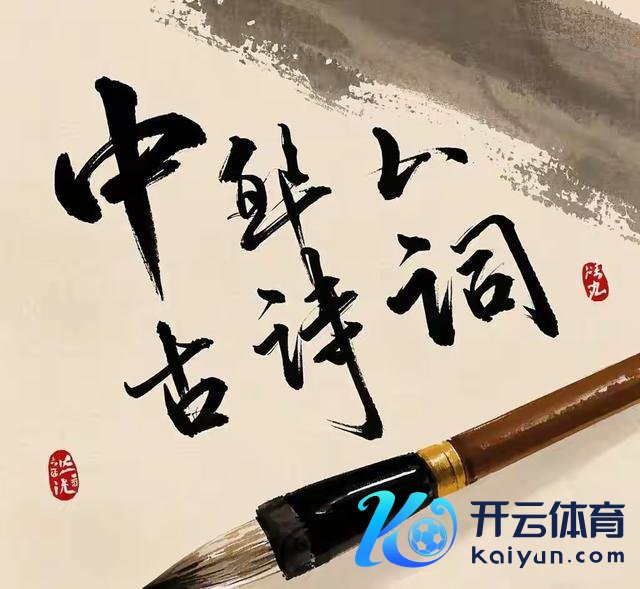 中
古诗词
开云体育
kaiyun.com